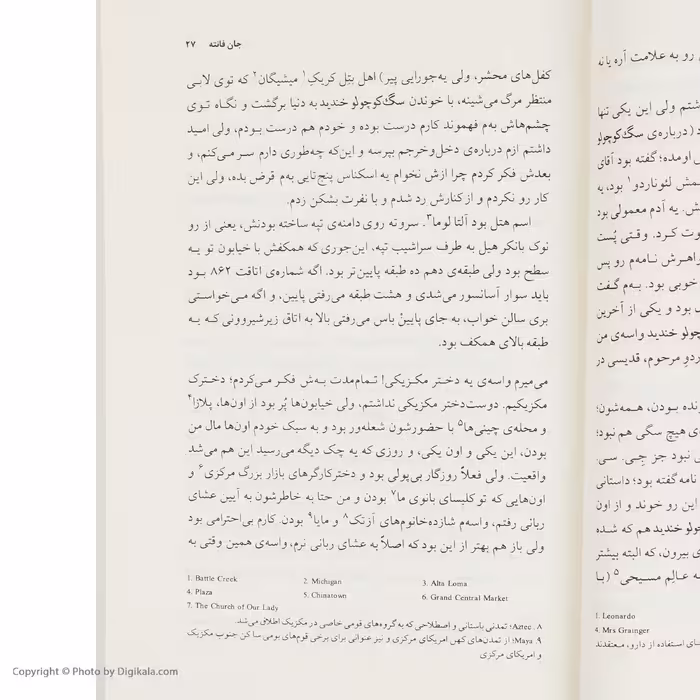 جان فانته ۲۷
کفل‌های محشر، ولی یه‌جورایی پیر) اهل بتِل کریکِ۱ میشیگان۲ که توی لابی
منتظر مرگ می‌شینه، با خوندن سگ‌کوچولو خندید به دنیا برگشت و نگاه توی
چشم‌هاش به‌م فهموند کارم درست بوده و خودم هم درست بودم، ولی امید
داشتم ازم درباره‌ی دخل‌وخرجم بپرسه و این‌که چه‌طوری دارم سر می‌کنم، و
بعدش فکر کردم چرا ازش نخوام یه اسکناس پنج‌تایی به‌م قرض بده، ولی این
کار رو نکردم و از کنارش رد شدم و با نفرت بشکن زدم.
اسم هتل بود آلتا لوما۳. سروته روی دامنه‌ی تپه ساخته بودنش، یعنی از رو
نوک بانکر هیل به طرف سراشیب تپه، این‌جوری که همکفش با خیابون تو یه
سطح بود ولی طبقه‌ی دهم ده طبقه پایین‌تر بود. اگه شماره‌ی اتاقت ۸۶۲ بود
باید سوار آسانسور می‌شدی و هشت طبقه می‌رفتی پایین، و اگه می‌خواستی
بری سالن خواب، به جای پایینْ باس می‌رفتی بالا به اتاق زیرشیروونی که یه
طبقه بالای همکف بود.
می‌میرم واسه‌ی یه دختر مکزیکی! تمام‌مدت به‌ش فکر می‌کردم؛ دخترک
مکزیکیم. دوست‌دختر مکزیکی نداشتم، ولی خیابون‌ها پُر بود از اون‌ها، پلازا۴
و محله‌ی چینی‌ها۵ با حضورشون شعله‌ور بود و به سبک خودم اون‌ها مال من
بودن، این یکی و اون یکی، و روزی که یه چک دیگه می‌رسید این هم می‌شد
واقعیت. ولی فعلاً روزگار بی‌پولی بود و دخترکارگرهای بازار بزرگ مرکزی۶ و
اون‌هایی که تو کلیسای بانوی ما۷ بودن و من حتا به خاطرشون به آیین عشای
ربانی رفتم، واسه‌م شازده‌خانوم‌های آزتک۸ و مایا۹ بودن. کارم بی‌احترامی بود
ولی باز هم بهتر از این بود که اصلاً به عشای ربانی نرم، واسه‌ی همین وقتی به
1. Battle Creek 2. Michigan 3. Alta Loma
4. Plaza 5. Chinatown 6. Grand Central Market
7. The Church of Our Lady
۸. Aztec؛ تمدنی باستانی و اصطلاحی که به گروه‌های قومی خاصی در مکزیک اطلاق می‌شد.
۹. Maya؛ از تمدن‌های کهن امریکای مرکزی و نیز عنوانی برای برخی قوم‌های بومی ساکن جنوب مکزیک
و امریکای مرکزی
رو به علامت آره یا نه
شتم ولی این یکی تنها
(درباره‌ی سگ‌کوچولو
اومده؛ گفته بود آقای
لئوناردو۱ بود، یه
یه آدم معمولی بود
کرد. وقتی پُست
نامه‌م رو پس
خوبی بود. به‌م گفت
بود و یکی از آخرین
خندید واسه‌ی من
مرحوم، قدیسی در
بودن، همه‌شون؛
هیچ سگی هم نبود؛
نبود جز جِی. سی.
نامه گفته بود؛ داستانی
این رو خوند و از اون
خندید هم که شده
بیرون، که البته بیشتر
عالم مسیحی۵ (با
1. Leonardo
4. Mrs Grainger
استفاده از دارو، معتقدند
Copyright © Photo by Digikala.com